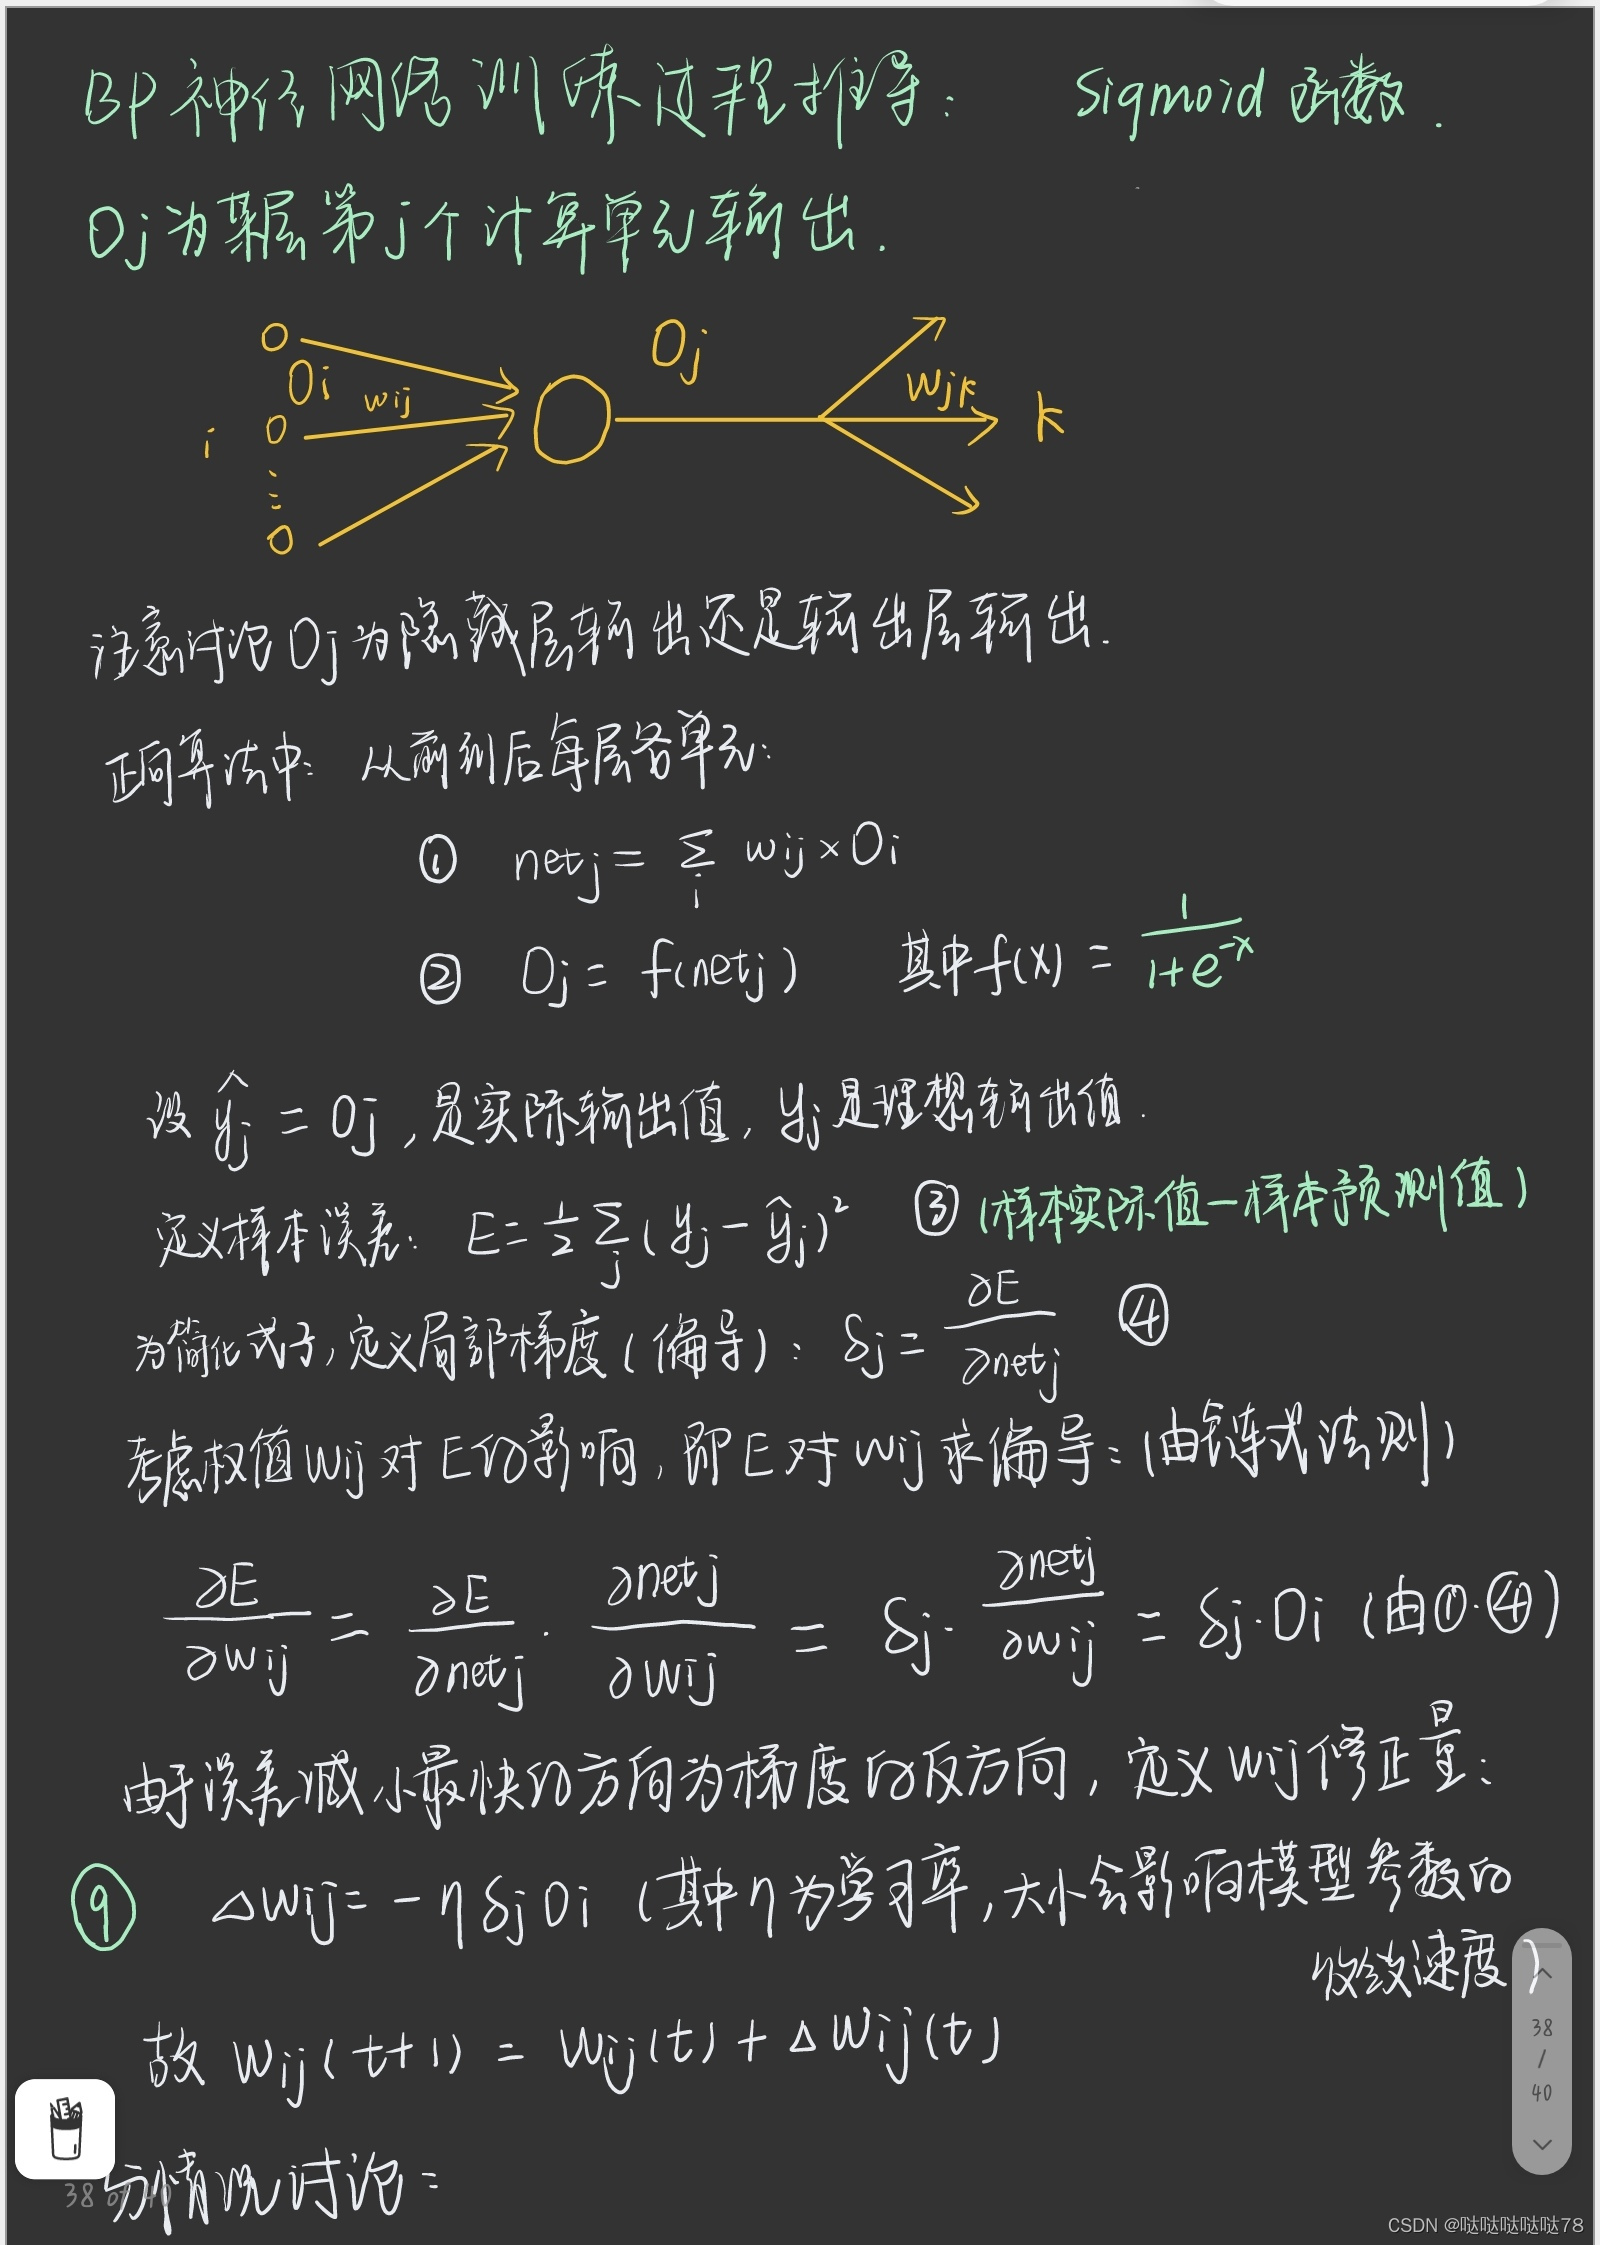 BP神经网络训练过程推导: Sigmoid 函数.
Oj为某层第j个计算单元输出.
Oi wij Oj wjk
i k
注意讨论Oj为隐藏层输出还是输出层输出.
正向算法中: 从前到后每层各单元:
① netj = Σi wij × Oi
② Oj = f(netj) 其中f(x) = 1/(1+e^-x)
设 ŷj = Oj, 是实际输出值, yj是理想输出值.
定义样本误差: E = 1/2 Σj (yj - ŷj)² ③ (样本实际值-样本预测值)
为简化式子, 定义局部梯度(偏导): δj = ∂E/∂netj ④
考虑权值wij对E的影响, 即E对wij求偏导: (由链式法则)
∂E/∂wij = ∂E/∂netj · ∂netj/∂wij = δj · ∂netj/∂wij = δj · Oi (由①·④)
由于误差减小最快的方向为梯度的反方向, 定义wij修正量:
⑨ △wij = -ηδjOi (其中η为学习率, 大小会影响模型参数的
收敛速度)
故 wij(t+1) = wij(t) + △wij(t)
分情况讨论:
38 of 40
38
/
40
CSDN @哒哒哒哒哒78